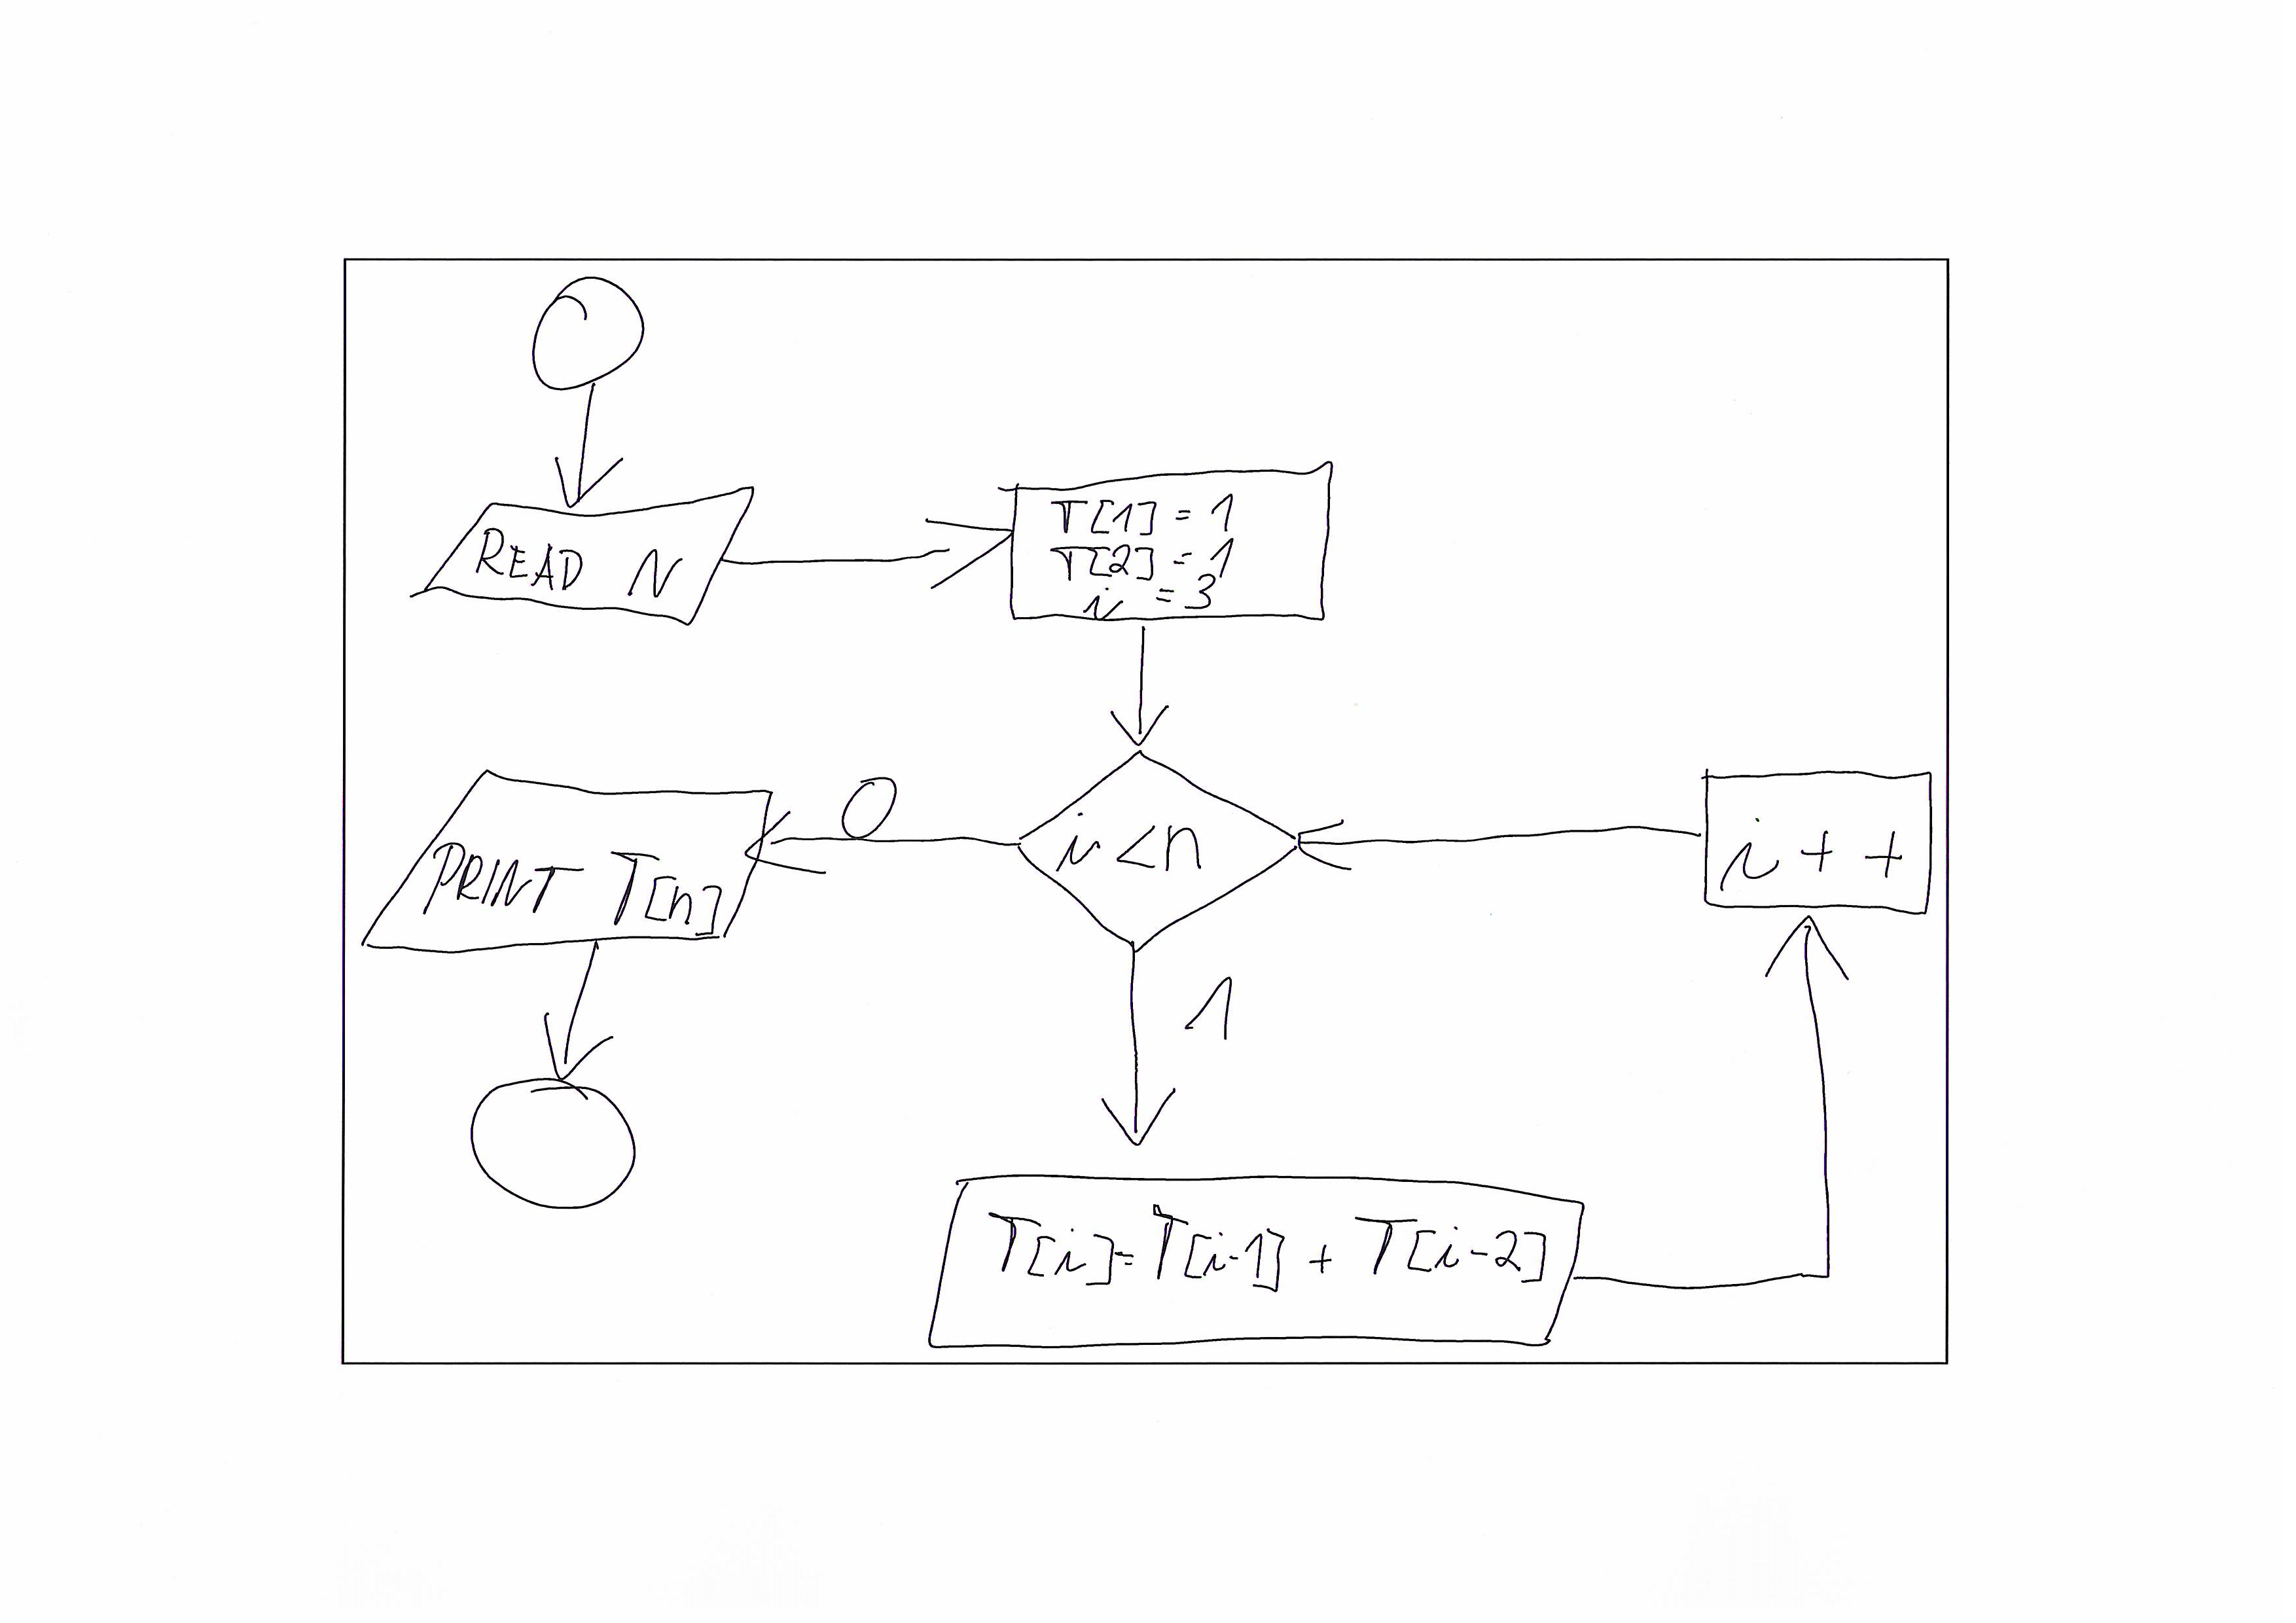 READ N
T[1] = 1
T[2] = 1
i = 3
i < n
0
1
PRINT T[n]
i + +
T[i] = T[i-1] + T[i-2]